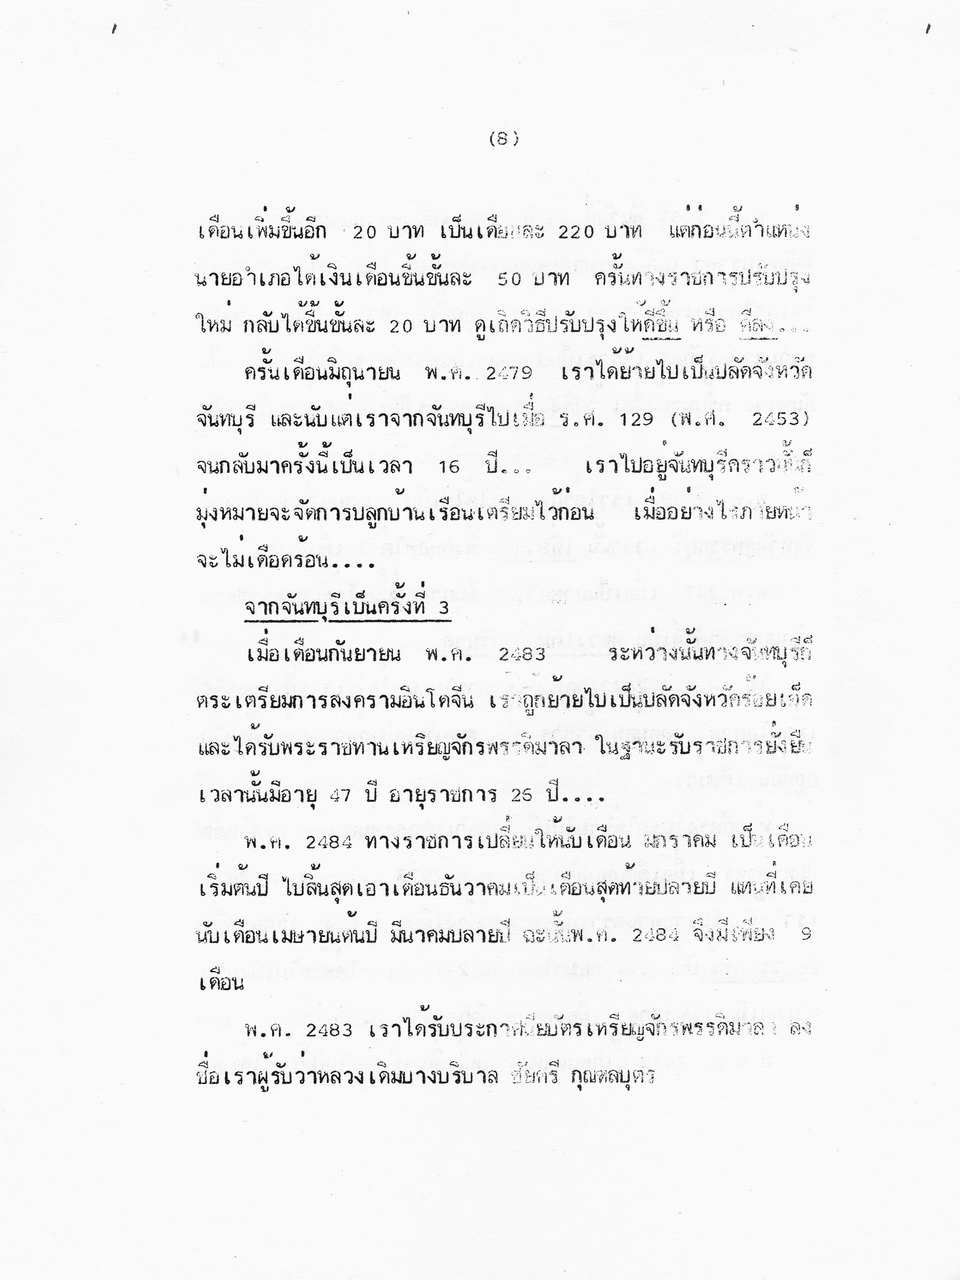 (8)
เดือนเพิ่มขึ้นอีก 20 บาท เป็นเดือนละ 220 บาท แต่ก่อนนี้ตำแหน่ง
นายอำเภอได้เงินเดือนขึ้นขั้นละ 50 บาท ครั้นทางราชการปรับปรุง
ใหม่ กลับได้ขึ้นขั้นละ 20 บาท ดูเถิดวิธีปรับปรุงให้ดีขึ้น หรือ ดีลง...
ครั้นเดือนมิถุนายน พ.ศ. 2479 เราได้ย้ายไปเป็นปลัดจังหวัด
จันทบุรี และนับแต่เราจากจันทบุรีไปเมื่อ ร.ศ. 129 (พ.ศ. 2453)
จนกลับมาครั้งนี้เป็นเวลา 16 ปี... เราไปอยู่จันทบุรีคราวนี้ก็
มุ่งหมายจะจัดการปลูกบ้านเรือนเตรียมไว้ก่อน เมื่ออย่างไรภายหน้า
จะไม่เดือดร้อน....
จากจันทบุรีเป็นครั้งที่ 3
เมื่อเดือนกันยายน พ.ศ. 2483 ระหว่างนั้นทางจันทบุรีก็
ตระเตรียมการสงครามอินโดจีน เราถูกย้ายไปเป็นปลัดจังหวัดร้อยเอ็ด
และได้รับพระราชทานเหรียญจักรพรรดิมาลา ในฐานะรับราชการยั่งยืน
เวลานั้นมีอายุ 47 ปี อายุราชการ 26 ปี....
พ.ศ. 2484 ทางราชการเปลี่ยนให้นับเดือน มกราคม เป็นเดือน
เริ่มต้นปี ไปสิ้นสุดเอาเดือนธันวาคมเป็นเดือนสุดท้ายปลายปี แทนที่เคย
นับเดือนเมษายนต้นปี มีนาคมปลายปี ฉะนั้นพ.ศ. 2484 จึงมีเพียง 9
เดือน
พ.ศ. 2483 เราได้รับประกาศนียบัตรเหรียญจักรพรรดิมาลา ลง
ชื่อเราผู้รับว่าหลวงเดิมบางบริบาล ชัยศรี กุณฑลบุตร